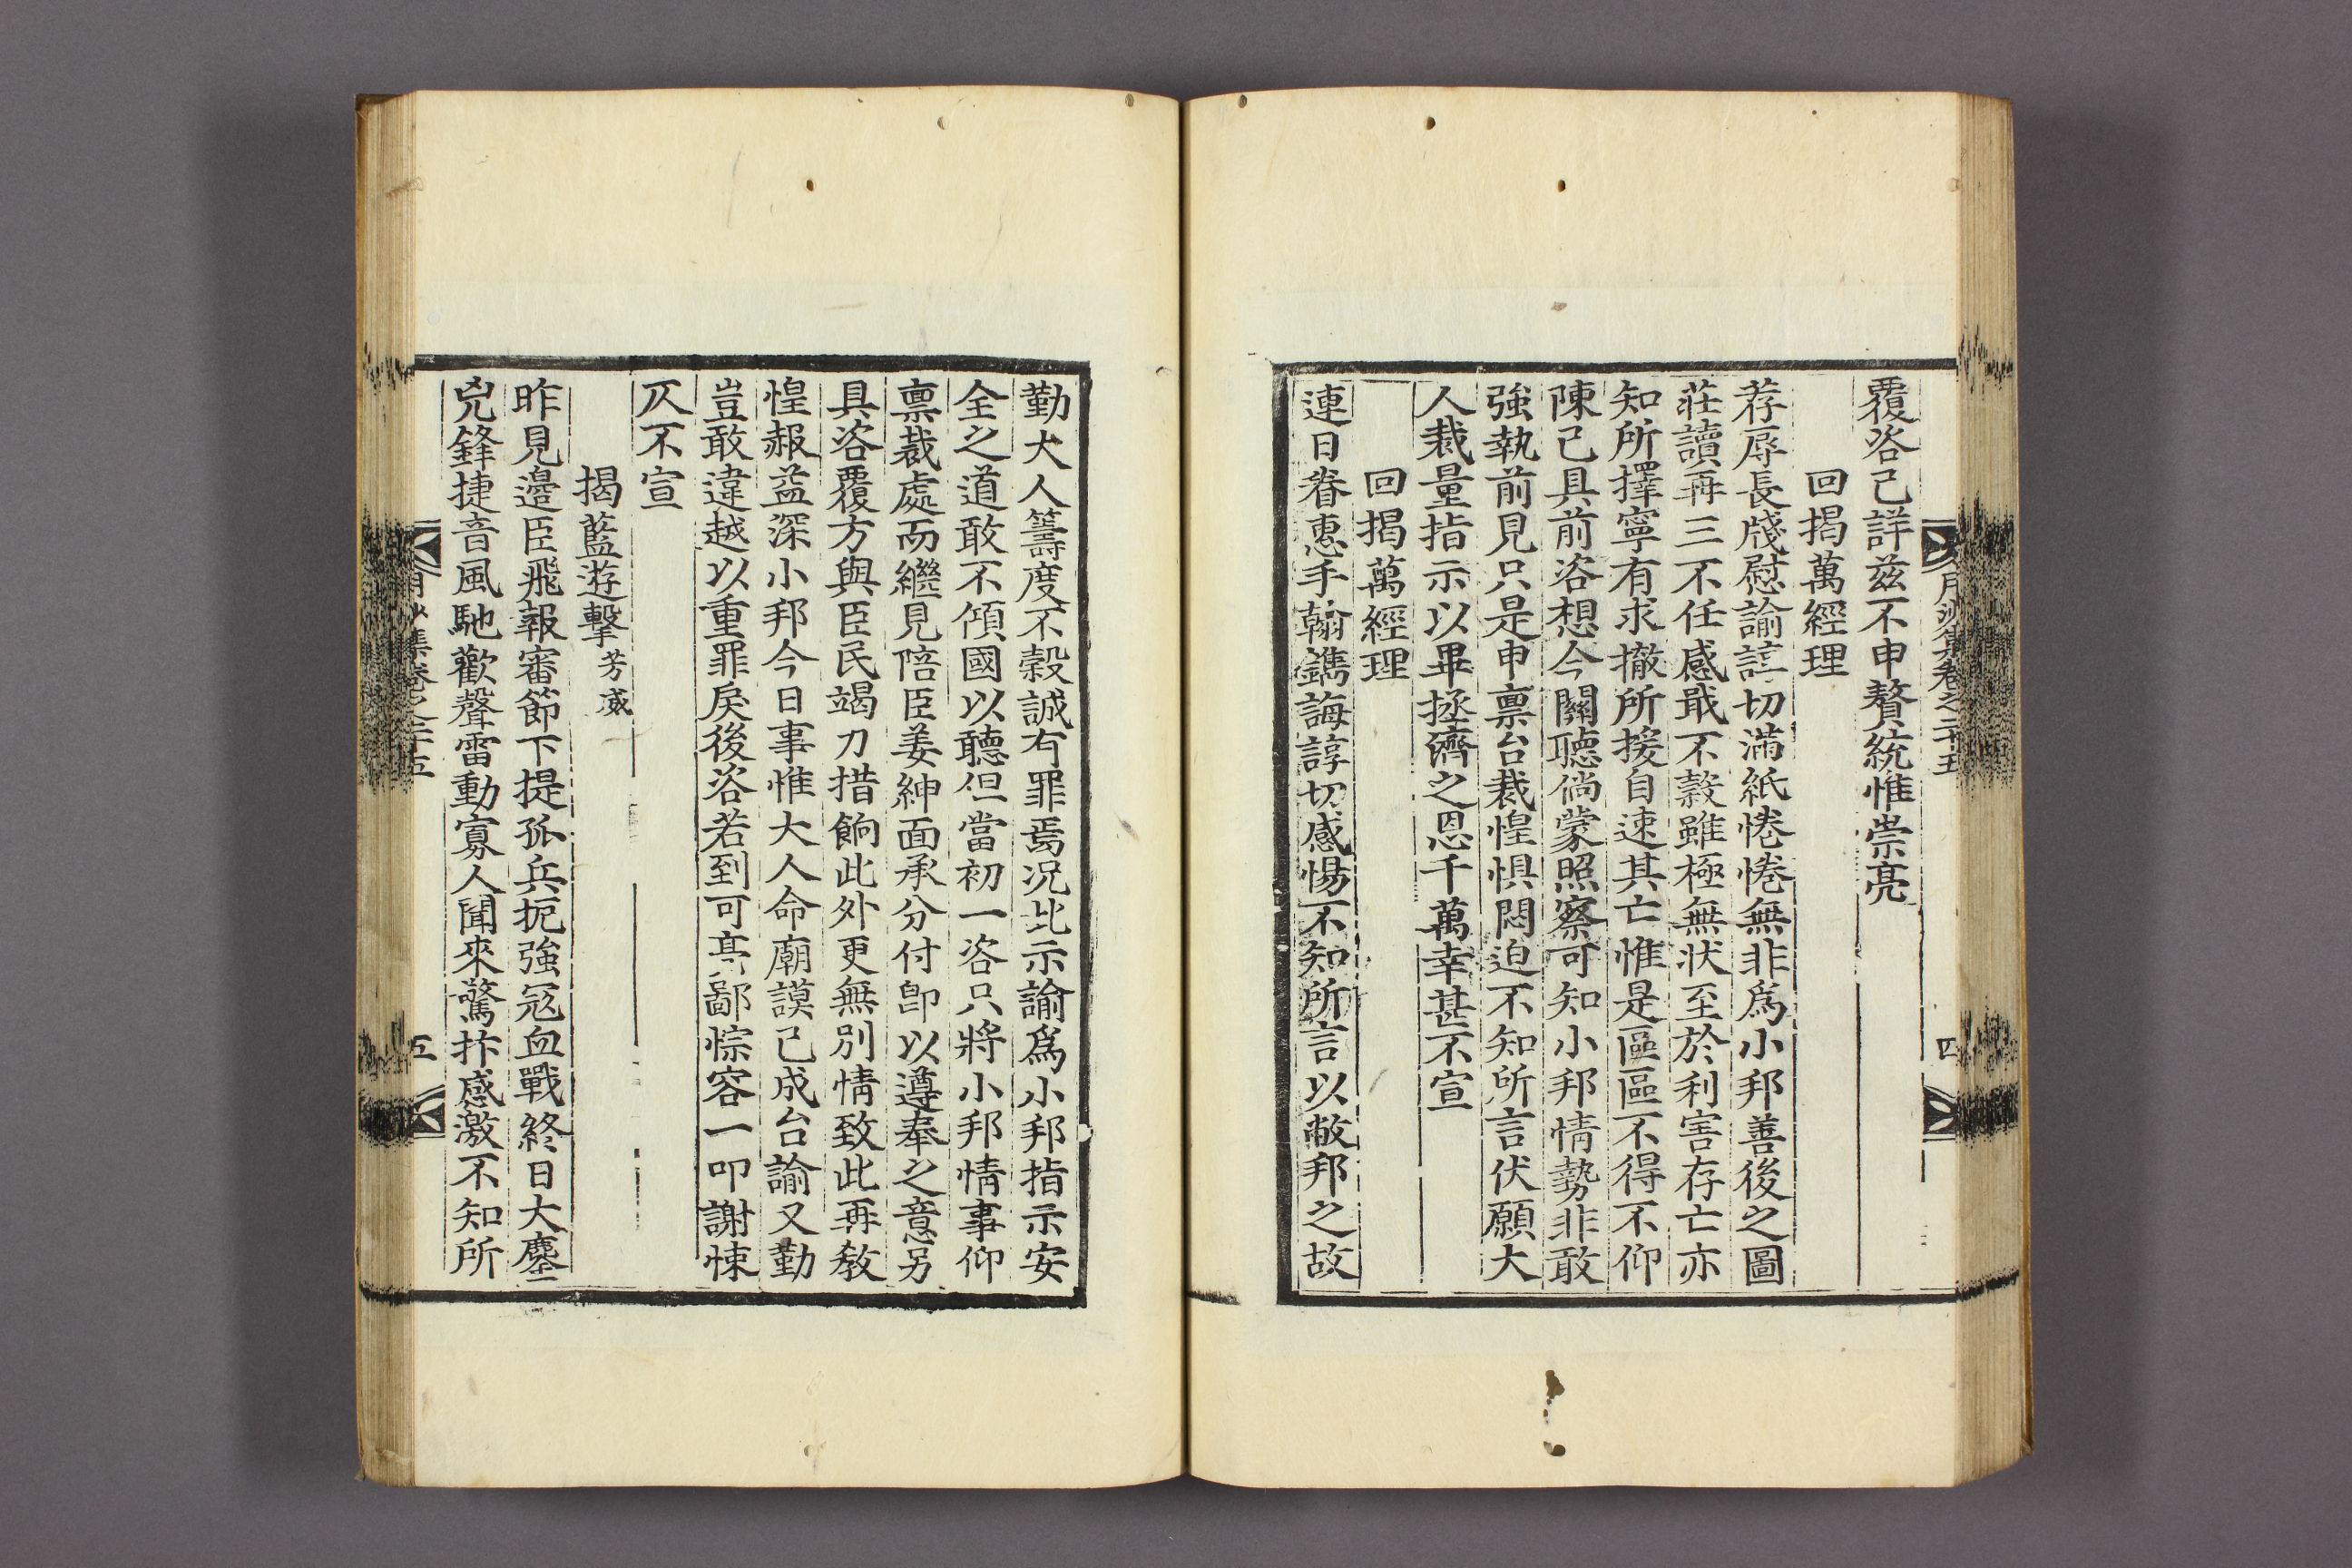 月沙集卷之二十五
四
覆咨已詳茲不申贅統惟崇亮
回揭萬經理
荐辱長牋慰諭諄切滿紙惓惓無非爲小邦善後之圖
莊讀再三不任感戢不穀雖極無狀至於利害存亡亦
知所擇寧有求撤所援自速其亡惟是區區不得不仰
陳已具前咨想今關聽倘蒙照察可知小邦情勢非敢
強執前見只是申禀台裁惶惧悶迫不知所言伏願大
人裁量指示以畢拯濟之恩千萬幸甚不宣
回揭萬經理
連日眷惠手翰鐫誨諄切感惕不知所言以敝邦之故
勤大人籌度不穀誠有罪焉况比示諭爲小邦指示安
全之道敢不傾國以聽但當初一咨只將小邦情事仰
禀裁處而繼見陪臣姜紳面承分付卽以遵奉之意另
具咨覆方與臣民竭力措餉此外更無別情致此再教
惶赧益深小邦今日事惟大人命廟謨已成台諭又勤
豈敢違越以重罪戾後咨若到可亮鄙悰容一叩謝悚
仄不宣
揭藍遊擊芳威
昨見邊臣飛報審節下提孤兵扼強冦血戰終日大鏖
兇鋒捷音風馳歡聲雷動寡人聞來驚抃感激不知所
月沙集卷之二十五
五